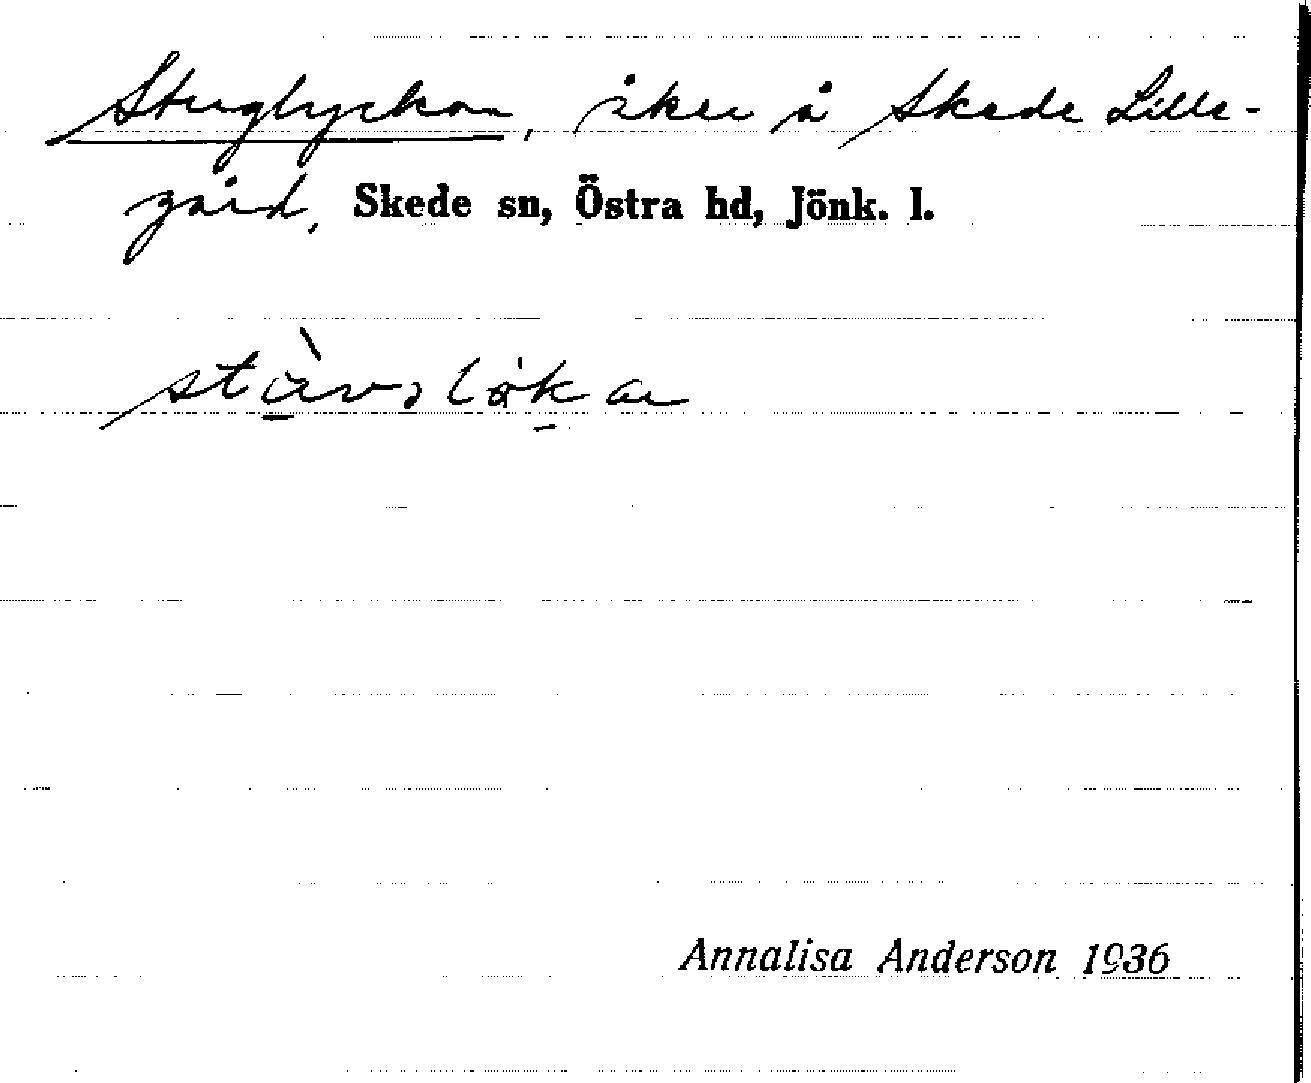 Stuglyckan, åker å Skede Lille-
gård, Skede sn, Östra hd, Jönk. l.
Annalisa Anderson 1936